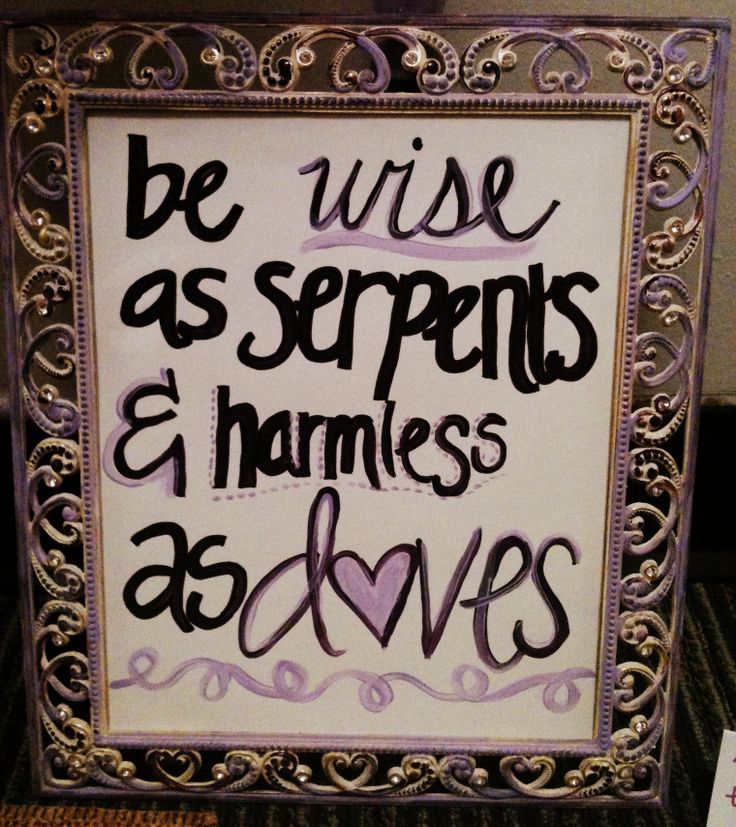 be wise
as serpents
& harmless
as doves